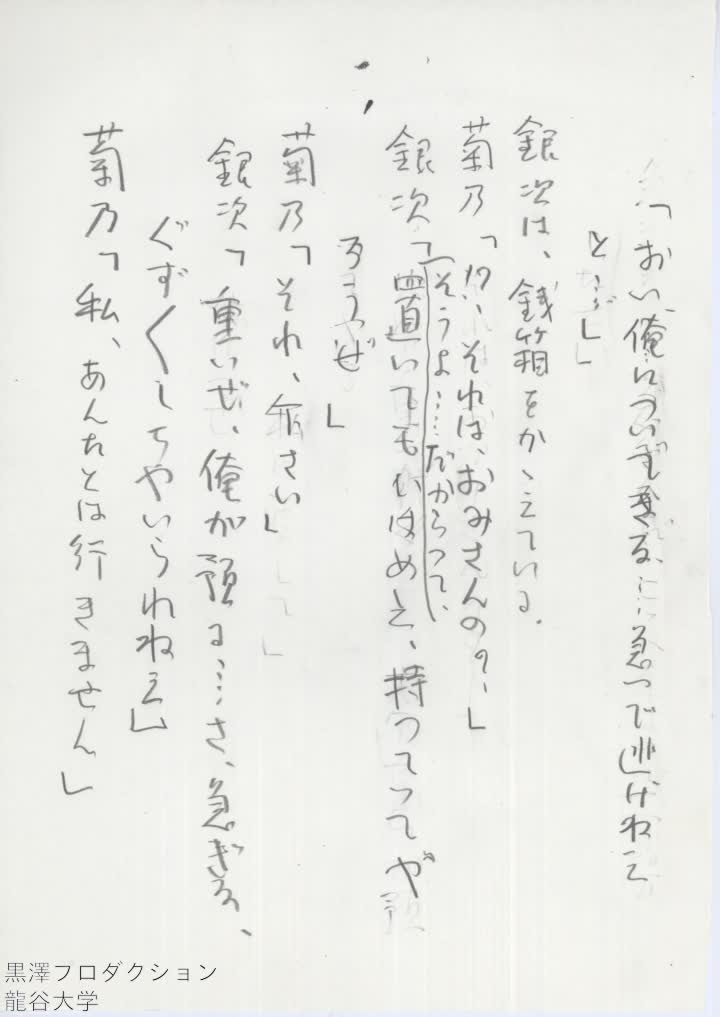 「おい、俺についてきな、……急いで逃げねえ
と…」」
銀次は、銭箱をかゝえている。
菊乃「?…それは、おみさんの?…」
銀次「そうよ……だからって、
置いてもいはめえ、持ってってや
ろうぜ」
菊乃「それ、下さい」
銀次「重いぜ、俺が預る…さ、急ぎな、
ぐずぐしちゃいられねえ」
菊乃「私、あんたとは行きません」
黒澤プロダクション
龍谷大学